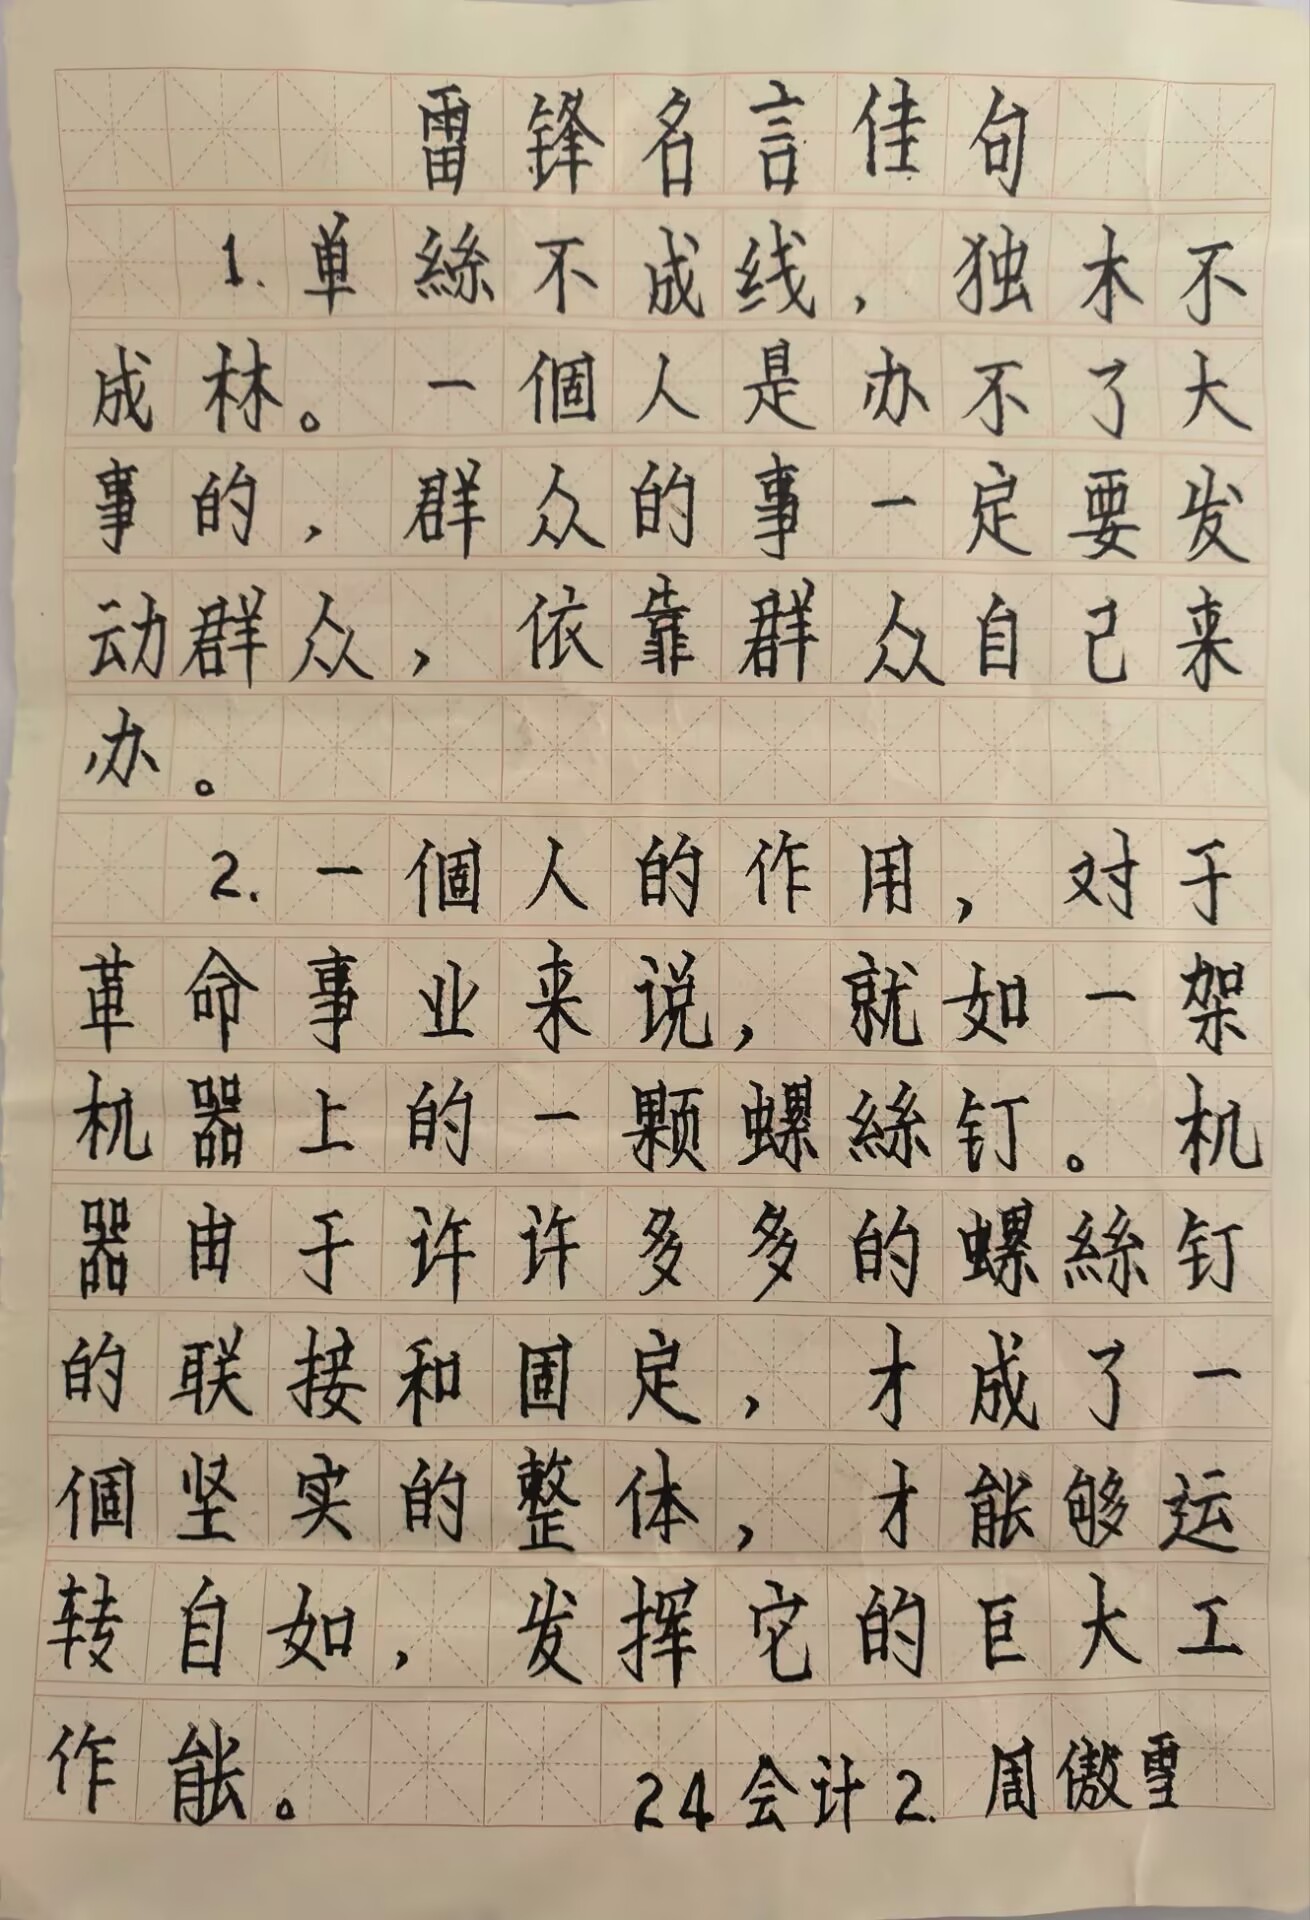 雷锋名言佳句
1.单絲不成线,独木不
成林。一個人是办不了大
事的,群众的事一定要发
动群众,依靠群众自己来
办。
2.一個人的作用,对于
革命事业来说,就如一架
机器上的一颗螺絲钉。机
器由于许许多多的螺絲钉
的联接和固定,才成了一
個坚实的整体,才能够运
转自如,发挥它的巨大工
作能。
24会计2.周傲雪